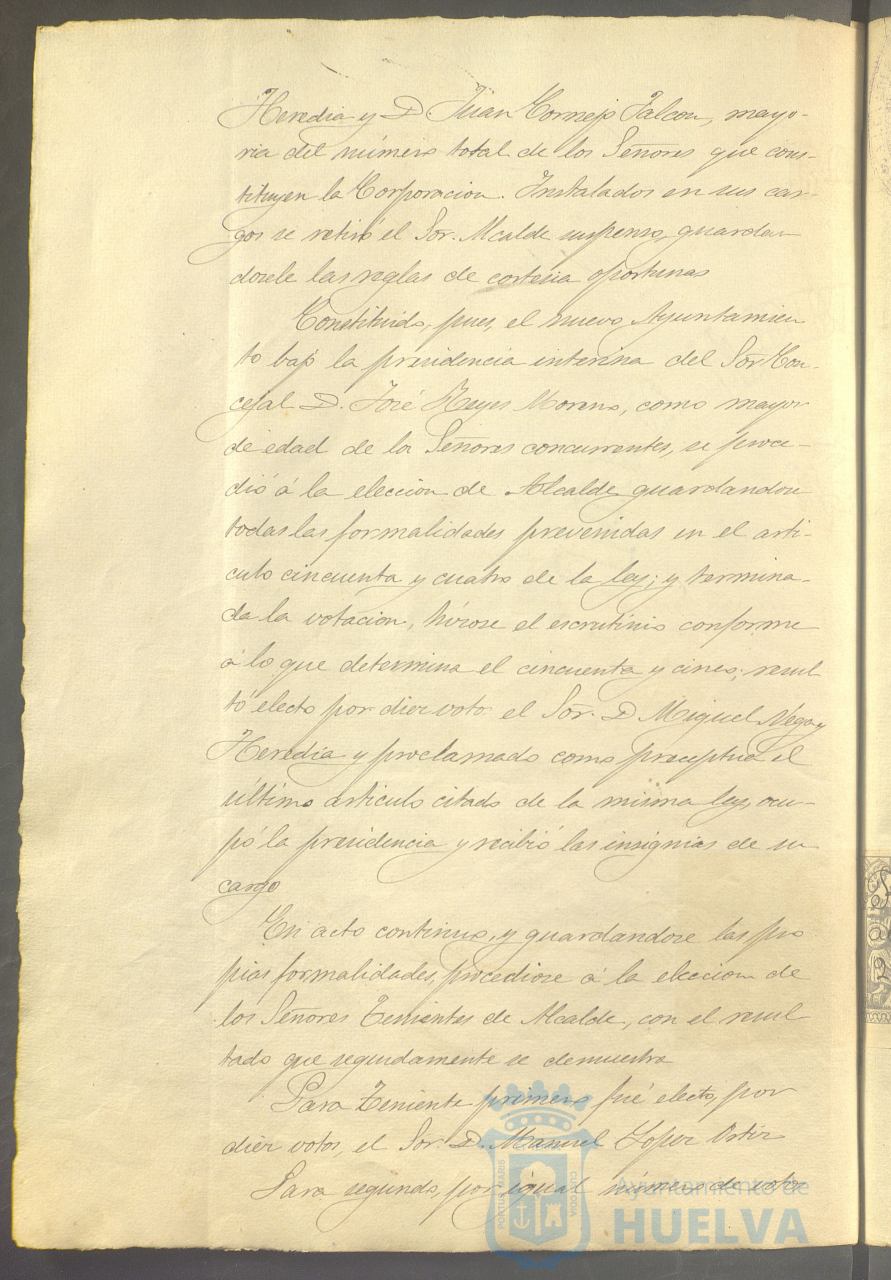 Heredia y D. Juan Cornejo Falcon, mayo-
ria del número total de los Señores que cons-
tituyen la Corporacion. Instalados en sus car-
gos se retiró el Sor. Alcalde suspenso, guardan
dosele las reglas de cortesia oportunas
Constituido, pues, el nuevo Ayuntamien
to bajo la presidencia interina del Sor Con-
cejal D. José Reyes Moreno, como mayor
de edad de los Señores concurrentes, se proce-
dió á la eleccion de Alcalde guardandose
todas las formalidades prevenidas en el arti-
culo cincuenta y cuatro de la ley; y termina-
da la votacion, hízose el escrutinio conforme
á lo que determina el cincuenta y cinco; resul
tó electo por diez votos el Sor. D Miguel Vega y
Heredia y proclamado como preceptua el
último articulo citado de la misma ley, ocu-
pó la presidencia y recibió las insignias de su
cargo
En acto continuo, y guardandose las pro
pias formalidades, procediose á la eleccion de
los Señores Tenientes de Alcalde, con el resul
tado que seguidamente se demuestra
Para Teniente primero fué electo, por
diez votos, el Sor. D. Manuel Lopez Ortiz
Para segundo por igual número de votos
PORTUS MARIS
CUSTODIA
Ayuntamiento de
HUELVA